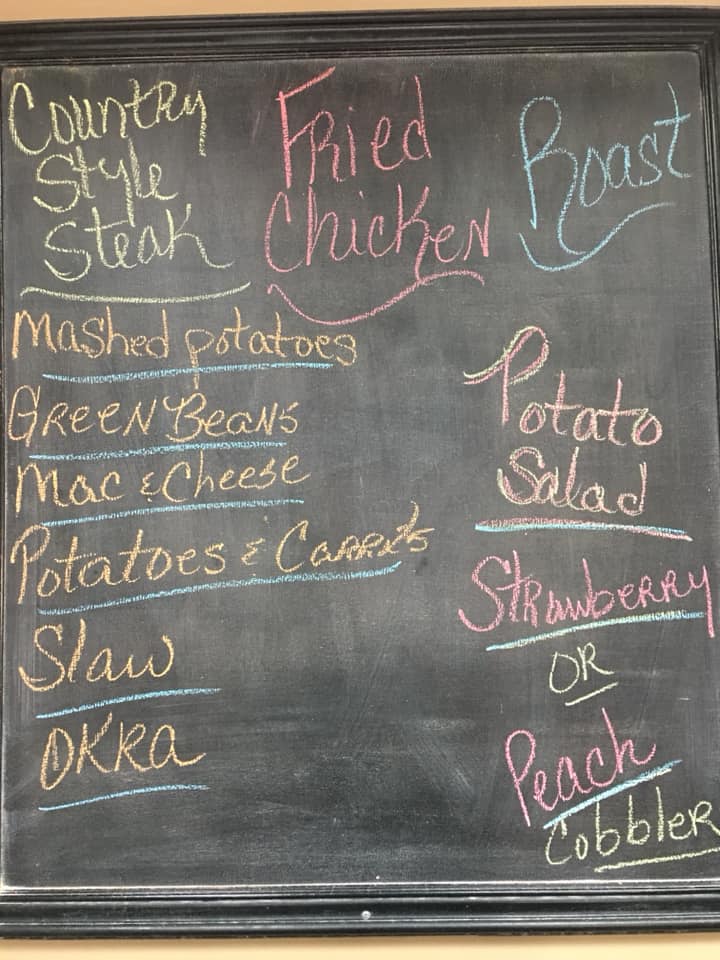 Country
Style
Steak
Fried
Chicken
Roast
Mashed potatoes
Green Beans
Mac & Cheese
Potatoes & Carrots
Slaw
OKRA
Potato
Salad
Strawberry
OR
Peach
Cobbler